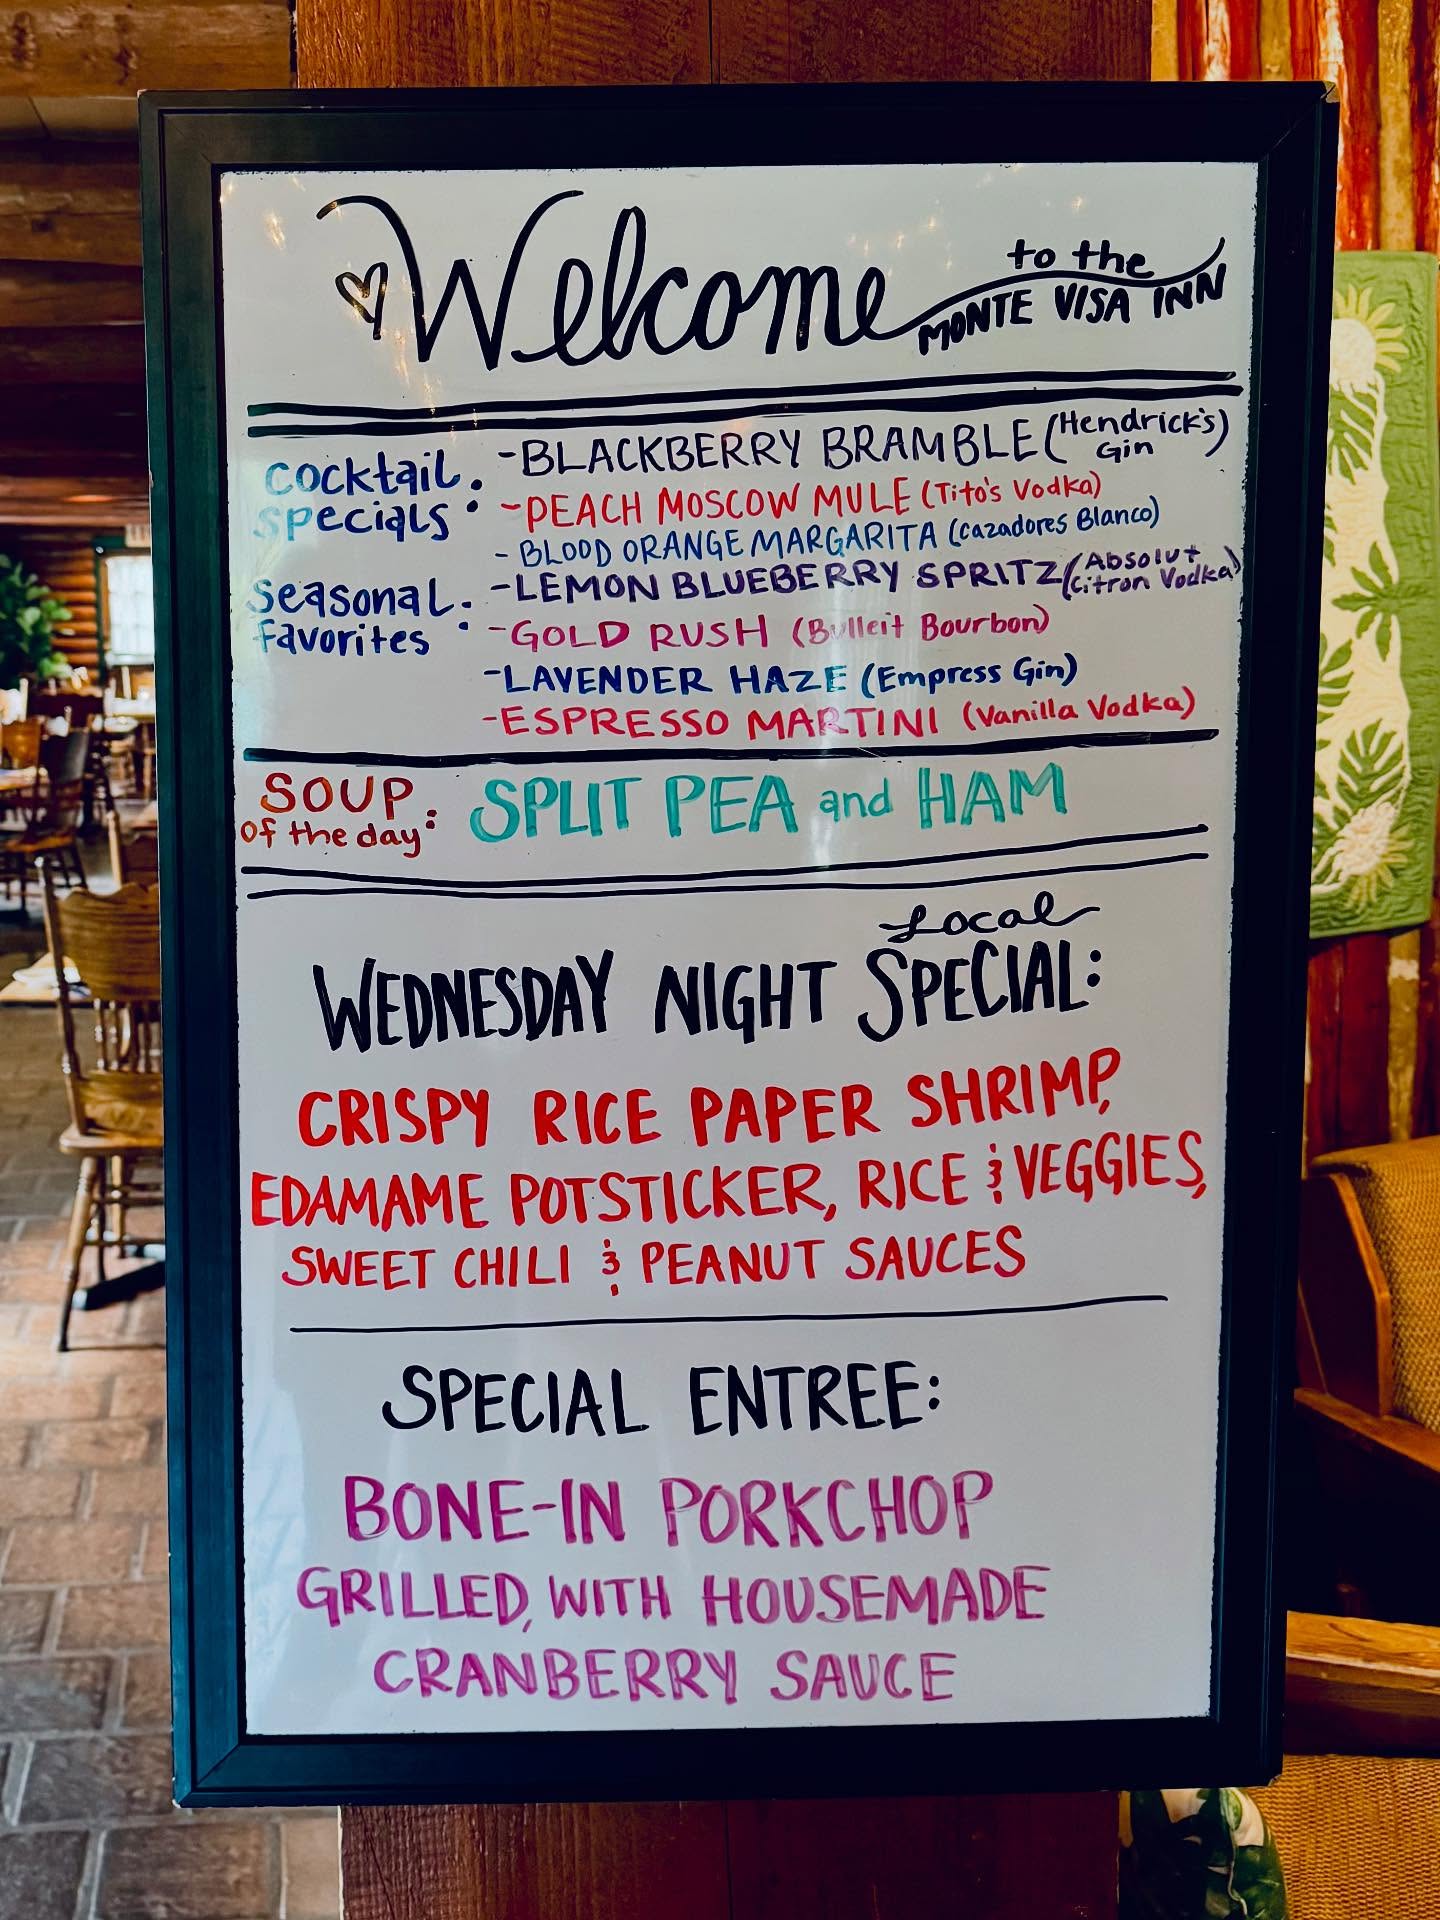 Welcome to the
MONTE VISA INN
Cocktail
specials:
-BLACKBERRY BRAMBLE (Hendrick's Gin)
-PEACH MOSCOW MULE (Tito's Vodka)
-BLOOD ORANGE MARGARITA (Cazadores Blanco)
Seasonal
favorites:
-LEMON BLUEBERRY SPRITZ (Absolut Citron Vodka)
-GOLD RUSH (Bulleit Bourbon)
-LAVENDER HAZE (Empress Gin)
-ESPRESSO MARTINI (Vanilla Vodka)
SOUP
of the day: SPLIT PEA and HAM
Local
WEDNESDAY NIGHT SPECIAL:
CRISPY RICE PAPER SHRIMP,
EDAMAME POTSTICKER, RICE & VEGGIES,
SWEET CHILI & PEANUT SAUCES
SPECIAL ENTREE:
BONE-IN PORKCHOP
GRILLED, WITH HOUSEMADE
CRANBERRY SAUCE